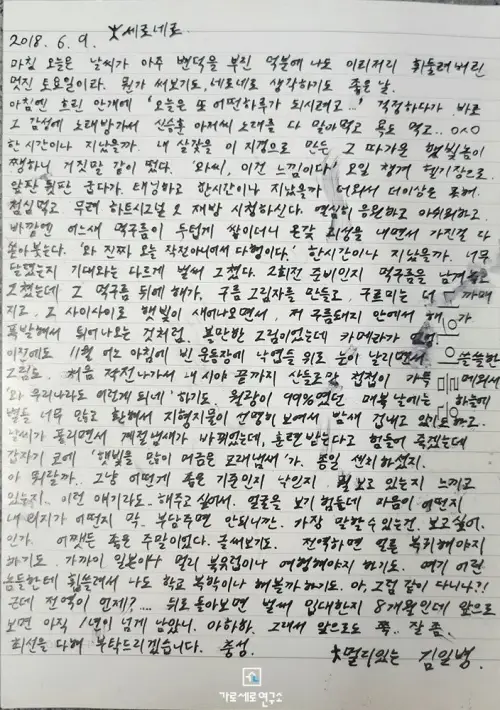 2018. 6. 9. 세로네로
마침 오늘은 날씨가 아주 변덕을 부린 덕분에 나도 이리저리 휘둘려버린
멋진 토요일이라. 뭔가 써보기도, 네로네로 생각하기도 좋은 날.
아침엔 흐린 안개에 '오늘은 또 어떤하루가 되시려고...' 걱정하다가 바로
그 감성에 노래방가서 신승훈 아저씨 노래를 다 말아먹고 욕도 먹고.. ㅇㅅㅇ
한 시간이나 지났을까. 내 살갗을 이 지경으로 만든 그 따가운 햇빛놈이
쨍하니 거짓말 같이 떴다. '와씨, 이건 느낌이다' 오일 챙겨 헬기장으로.
앞판 뒷판 굽다가. 태닝하고 한시간이나 지났을까 더워서 더이상은 포기.
점심먹고 무려 하트시그널 오 재방 시청하신다. 열심히 응원하고 아쉬워하고.
바깥엔 어느새 먹구름이 두텁게 쌓이더니 온갖 괴성을 내면서 가진걸 다
쏟아붓는다. '와 진짜 오늘 작전아니어서 다행이다.' 한시간이나 지났을까. 너무
담했는지 기대와는 다르게 벌써 그쳤다. 2회전 준비인지 먹구름을 남겨놓고
그쳤는데 그 먹구름 뒤에 해가, 구름 그림자를 만들고, 구르미는 더 까매
지고, 그 사이사이로 햇빛이 새어나오면서, 저 구름돼지 안에서 해가
폭발해서 튀어나오는 것처럼. 볼만한 그림이었는데 카메라가
이전에도 11월 어느 아침에 빈 운동장에 낙엽들 위로 눈이 날리면서 쓸쓸한
그림도. 처음 작전나가서 내 시야 끝까지 산들로만 첩첩이 가득 메워서
'와 우리나라도 이렇게 되네' 하기도. 월광이 99%였던 매복 날에는 하늘에
별들 너무 많고 환해서 지형지물이 선명히 보여서 밤새 겁내고 있기도하고.
날씨가 풀리면서 계절냄새가 바뀌었는데, 훈련 받는다고 힘들어 죽겠는데
갑자기 코에 '햇빛을 많이 머금은 모래냄새'가. 종일 센치하셨지.
아 뭐랄까.. 그냥 어떻게 좋은 기준인지 낮인지 보고 있는지 느끼고
있는지.. 이런 얘기라도.. 해주고 싶어서. 얼굴을 보기 힘든데 마음이 어떤지
내 의지가 어떤지 막.. 부담주면 안되니깐. 가장 말할 수 있는건. 보고싶어.
인가. 어쨌든 좋은 주말이었다. 글써보기도. 전역하면 얼른 복귀해야지
하기도. 가까이 일본이나 멀리 북유럽이나 여행해야지 하기도. 여기 어린
놈들한테 휩쓸려서 나도 학교 복학이나 해볼까하기도. 아, 그럼 같이 다니나?!
근데 전역이 언제?.... 뒤로 돌아보면 벌써 입대한지 8개월인데 앞으로
보면 아직 1년이 넘게 남았니. 아하하. 그래서 앞으로도 쭉.. 잘 좀.
최선을 다해 부탁드리겠습니다. 충성.
멀리있는 김일병
의 아름
가로세로연구소